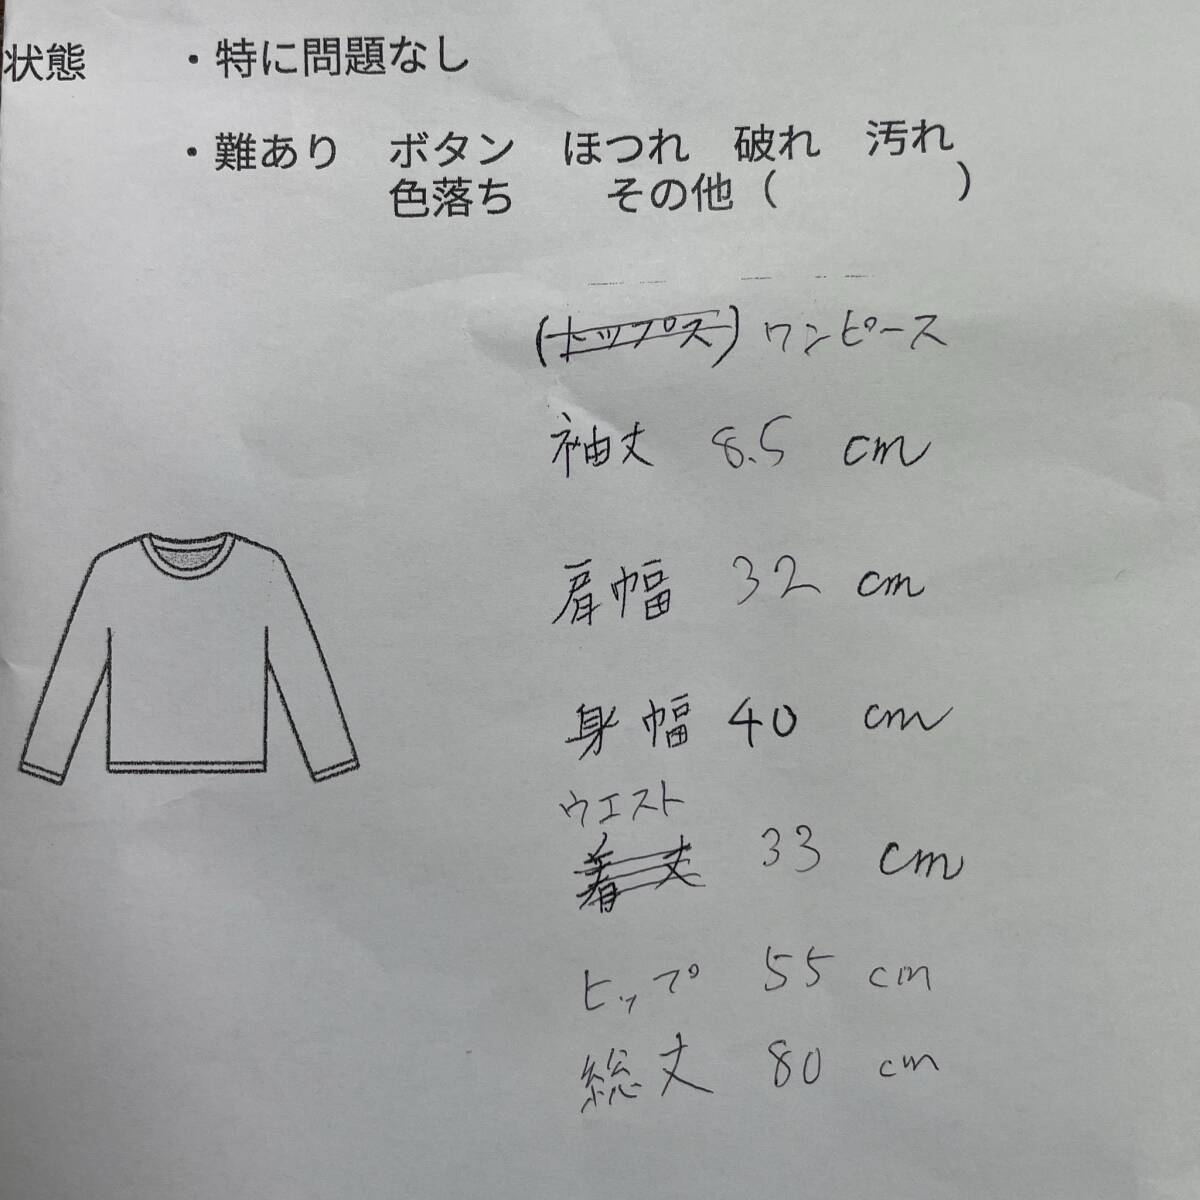 状態　・特に問題なし
・難あり　ボタン　ほつれ　破れ　汚れ
色落ち　その他（　　　　）
(トップス) ワンピース
袖丈 8.5 cm
肩幅 32 cm
身幅 40 cm
ウエスト
着丈 33 cm
ヒップ 55 cm
総丈 80 cm